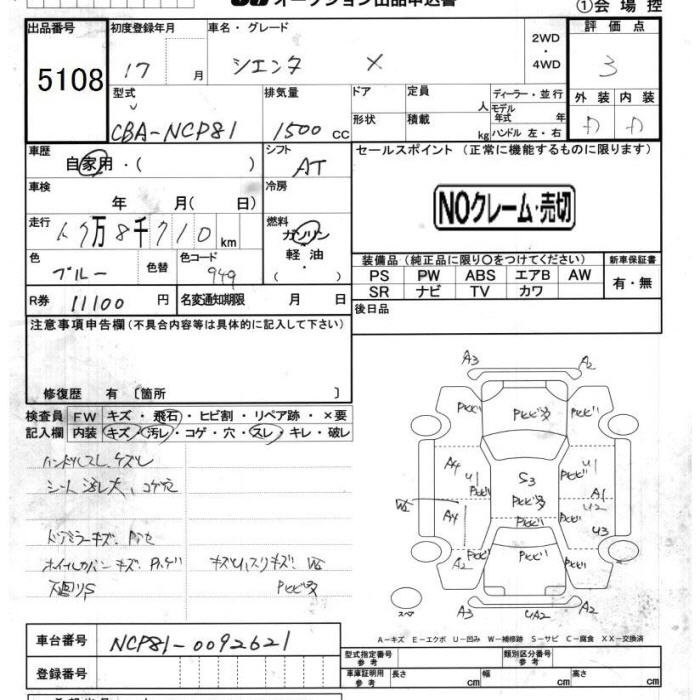 オークション出品申込書
①会場控
出品番号
5108
初度登録年月
17 月
車名・グレード
シエンタ X
2WD
・
4WD
評価点
3
型式
CBA-NCP81
排気量
1500 CC
ドア
定員
人
ディーラー・並行
モデル
年式 年
形状
積載
kg
ハンドル 左・右
外装
内装
D D
車歴
自家用・( )
シフト
AT
セールスポイント (正常に機能するものに限ります)
車検
年 月( 日)
冷房
NOクレーム・売切
走行
万8千710 km
燃料
ガソリン
軽油・
( )
色
ブルー
色替
色コード
949
装備品 (純正品に限り○をつけてください)
新車保証書
PS PW ABS エアB AW
SR ナビ TV カワ
有・無
R券
11100 円
名変通知期限 月 日
後日品
注意事項申告欄 (不具合内容等は具体的に記入して下さい)
修復歴 有 〔箇所 〕
検査員
記入欄
FW キズ・飛石・ヒビ割・リペア跡・×要
内装 キズ・汚レ・コゲ・穴・スレ・キレ・破レ
ハンドルスレ、ケズレ
シート汚レ大、コゲ穴
ドアミラーキズ、
ホイールカバーキズ、ハゲ
下廻りS
A3
A2
Pヒビ
Pヒビ多
Pヒビ
A4
U1
Pヒビ
S3
Pヒビ多
Pヒビ
U1
Pヒビ
A1
U2
W2
A4
Pヒビ
Pヒビ
U3
A2
Pヒビ
Pヒビ
Pヒビ
A3
UA2
A2
スペア
A-キズ E-エクボ U-凹み W-補修跡 S-サビ C-腐食 XX-交換済
車台番号
NCP81-0092621
登録番号
型式指定番号
参考
類別区分番号
参考
車庫証明用
参考
長さ cm
幅 cm
高さ cm